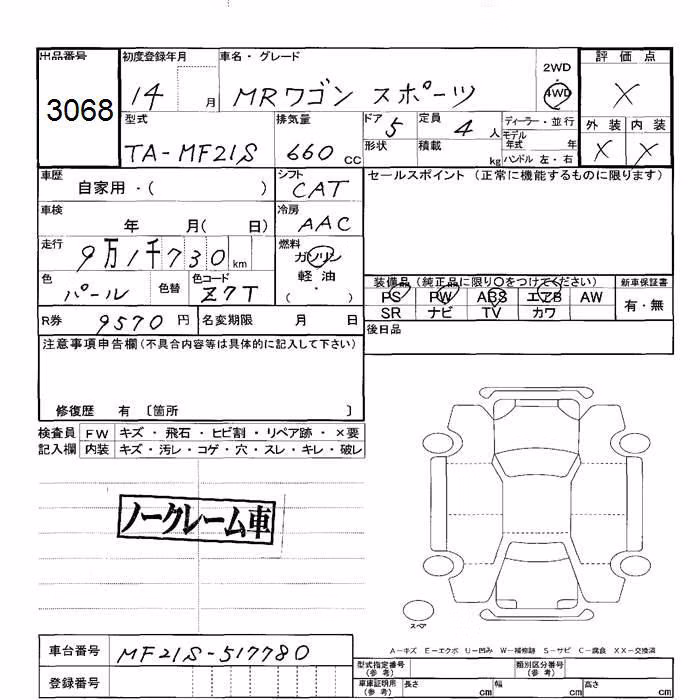 出品番号 初度登録年月 車名・グレード 評価点
3068 14 月 MRワゴン スポーツ 2WD 4WD X
型式 排気量 ドア 定員 ディーラー・並行 外装 内装
TA-MF21S 660 cc 5 4 人 モデル年式 年 X X
形状 積載 kg ハンドル 左・右
車歴 自家用・( ) シフト CAT セールスポイント (正常に機能するものに限ります)
車検 年 月( 日) 冷房 AAC
走行 9万1千730 km 燃料 ガソリン
軽油
・
( )
色 パール 色替 色コード Z7T
装備品 (純正品に限り○をつけてください) 新車保証書
PS PW ABS エアB AW 有・無
SR ナビ TV カワ
R券 9570 円 名変期限 月 日 後日品
注意事項申告欄 (不具合内容等は具体的に記入して下さい)
修復歴 有 〔箇所 〕
検査員 FW キズ・飛石・ヒビ割・リペア跡・×要
記入欄 内装 キズ・汚レ・コゲ・穴・スレ・キレ・破レ
ノークレーム車
スペア
A-キズ E-エクボ U-凹み W-補修跡 S-サビ C-腐食 XX-交換済
車台番号 MF21S-517780
登録番号
型式指定番号 (参考) 類別区分番号 (参考)
車庫証明用 (参考) 長さ cm 幅 cm 高さ cm